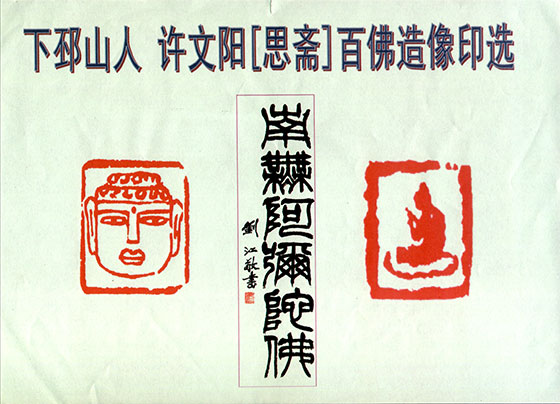 下邳山人 许文阳[思斋]百佛造像印选
南無阿彌陀佛
劉江敬書